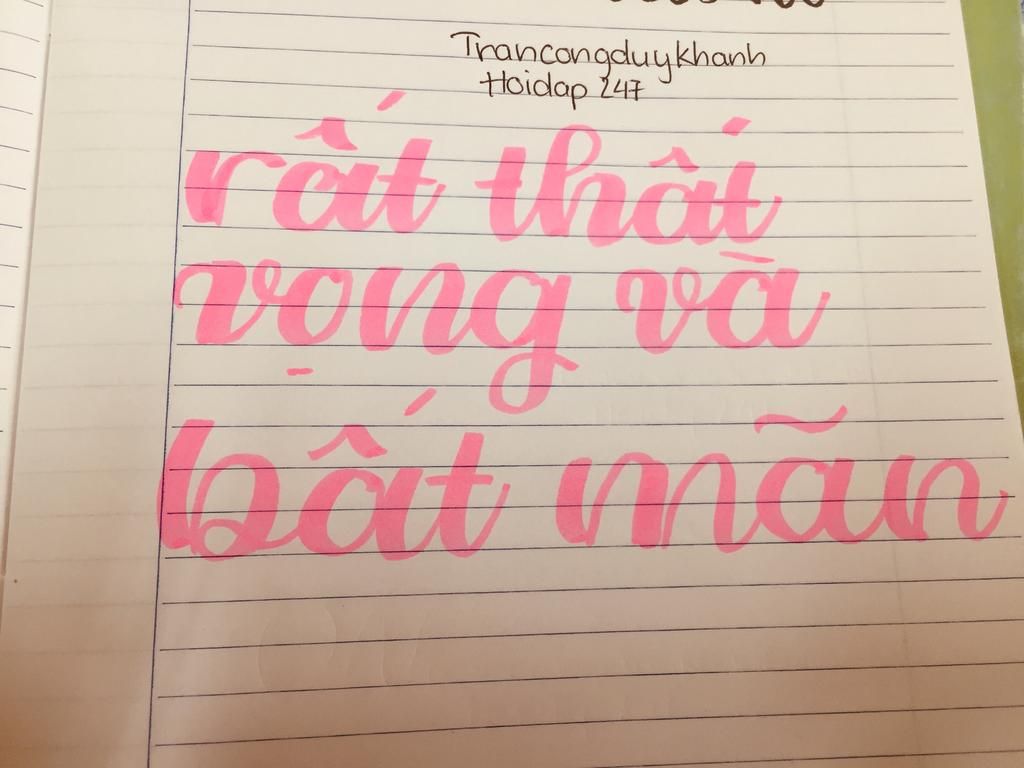 Trancongduykhanh
Hoidap 247
rất thất
vọng và
bất mãn